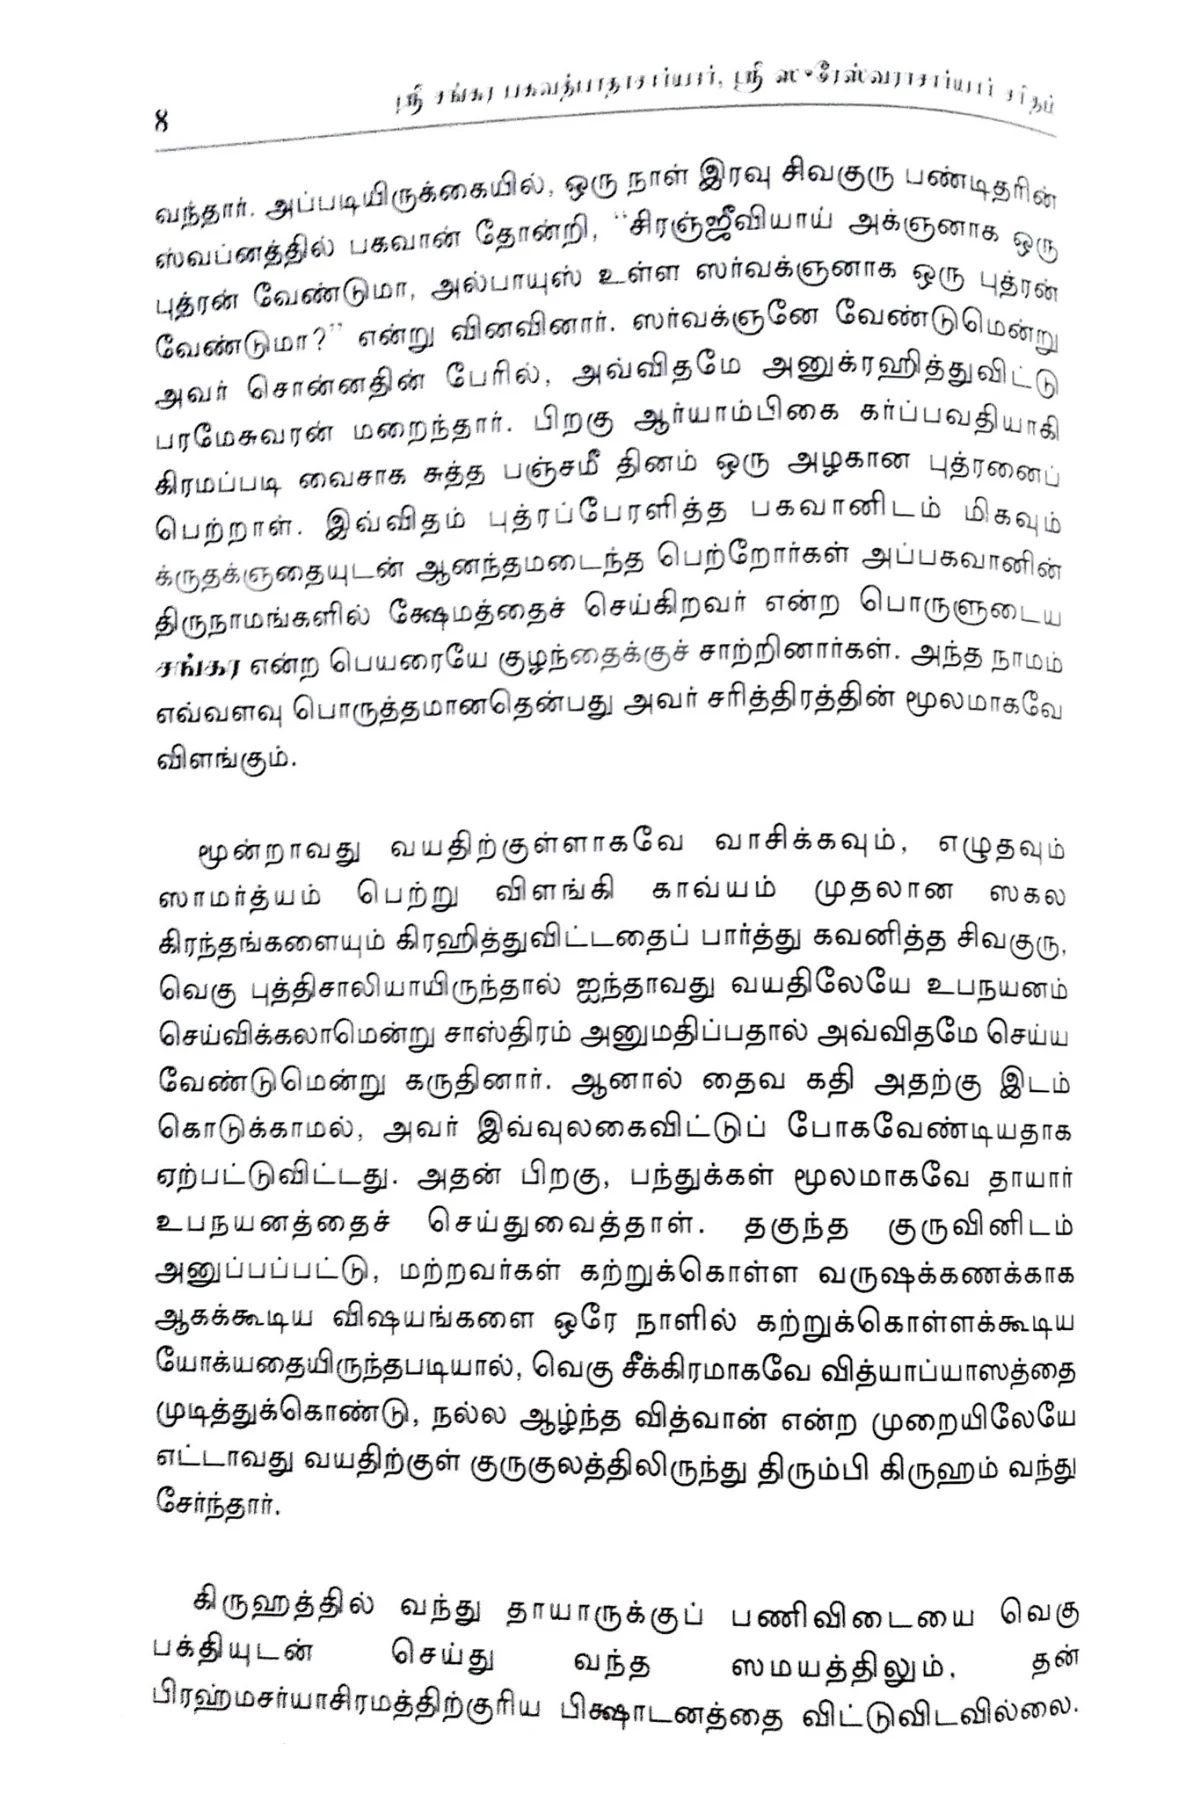 ஸ்ரீ சங்கர பகவத்பாதாசார்யார், ஸ்ரீ ஸுரேஸ்வராசார்யார் சரிதம்
8
வந்தார். அப்படியிருக்கையில், ஒரு நாள் இரவு சிவகுரு பண்டிதரின்
ஸ்வப்னத்தில் பகவான் தோன்றி, “சிரஞ்ஜீவியாய் அக்ஞனாக ஒரு
புத்ரன் வேண்டுமா, அல்பாயுஸ் உள்ள ஸர்வக்ஞனாக ஒரு புத்ரன்
வேண்டுமா?” என்று வினவினார். ஸர்வக்ஞனே வேண்டுமென்று
அவர் சொன்னதின் பேரில், அவ்விதமே அனுக்ரஹித்துவிட்டு
பரமேசுவரன் மறைந்தார். பிறகு ஆர்யாம்பிகை கர்ப்பவதியாகி
கிரமப்படி வைசாக சுத்த பஞ்சமீ தினம் ஒரு அழகான புத்ரனைப்
பெற்றாள். இவ்விதம் புத்ரப்பேரளித்த பகவானிடம் மிகவும்
க்ருதக்ஞதையுடன் ஆனந்தமடைந்த பெற்றோர்கள் அப்பகவானின்
திருநாமங்களில் க்ஷேமத்தைச் செய்கிறவர் என்ற பொருளுடைய
சங்கர என்ற பெயரையே குழந்தைக்குச் சாற்றினார்கள். அந்த நாமம்
எவ்வளவு பொருத்தமானதென்பது அவர் சரித்திரத்தின் மூலமாகவே
விளங்கும்.
மூன்றாவது வயதிற்குள்ளாகவே வாசிக்கவும், எழுதவும்
ஸாமர்த்யம் பெற்று விளங்கி காவ்யம் முதலான ஸகல
கிரந்தங்களையும் கிரஹித்துவிட்டதைப் பார்த்து கவனித்த சிவகுரு,
வெகு புத்திசாலியாயிருந்தால் ஐந்தாவது வயதிலேயே உபநயனம்
செய்விக்கலாமென்று சாஸ்திரம் அனுமதிப்பதால் அவ்விதமே செய்ய
வேண்டுமென்று கருதினார். ஆனால் தைவ கதி அதற்கு இடம்
கொடுக்காமல், அவர் இவ்வுலகைவிட்டுப் போகவேண்டியதாக
ஏற்பட்டுவிட்டது. அதன் பிறகு, பந்துக்கள் மூலமாகவே தாயார்
உபநயனத்தைச் செய்துவைத்தாள். தகுந்த குருவினிடம்
அனுப்பப்பட்டு, மற்றவர்கள் கற்றுக்கொள்ள வருஷக்கணக்காக
ஆகக்கூடிய விஷயங்களை ஒரே நாளில் கற்றுக்கொள்ளக்கூடிய
யோக்யதையிருந்தபடியால், வெகு சீக்கிரமாகவே வித்யாப்யாஸத்தை
முடித்துக்கொண்டு, நல்ல ஆழ்ந்த வித்வான் என்ற முறையிலேயே
எட்டாவது வயதிற்குள் குருகுலத்திலிருந்து திரும்பி கிருஹம் வந்து
சேர்ந்தார்.
கிருஹத்தில் வந்து தாயாருக்குப் பணிவிடையை வெகு
பக்தியுடன் செய்து வந்த ஸமயத்திலும், தன்
பிரஹ்மசர்யாசிரமத்திற்குரிய பிக்ஷாடனத்தை விட்டுவிடவில்லை.